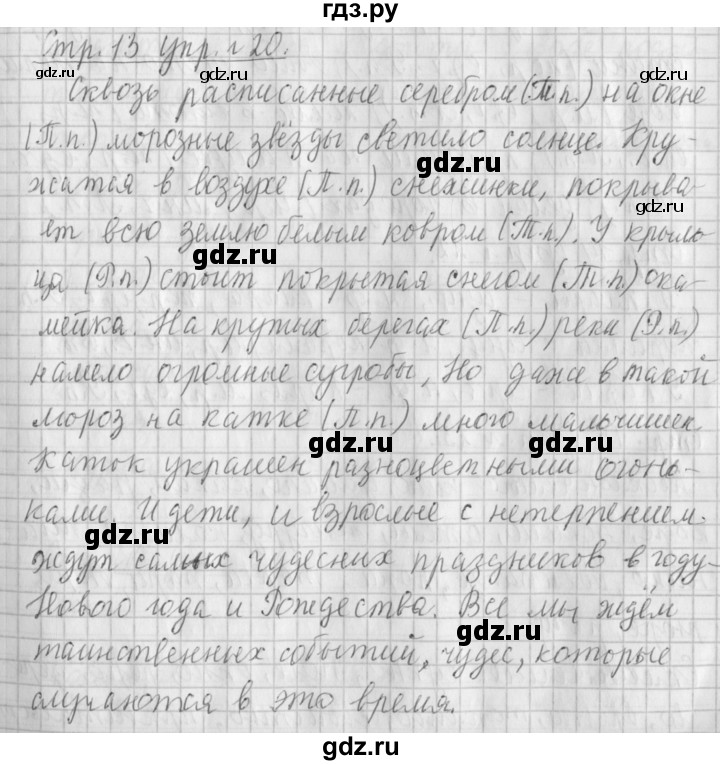 гдз.ру
Стр. 13 упр. 20.
Сквозь расписанные серебром (Т.п.) на окне
(П.п.) морозные звёзды светило солнце. Кру-
жатся в воздухе (П.п.) снежинки, покрыва-
ет всю землю белым ковром (Т.п.). У крыль
ца (Р.п.) стоит покрытая снегом (Т.п.) ска-
мейка. На крутых берегах (П.п.) реки (Р.п.)
намело огромные сугробы, Но даже в такой
мороз на катке (П.п.) много мальчишек.
Каток украшен разноцветными огонь-
ками. И дети, и взрослые с нетерпением
ждут самых чудесных праздников в году-
Нового года и Рождества. Все мы ждём
таинственных событий, чудес, которые
случаются в это время.
gdz.ru
gdz.ru
gdz.ru
gdz.ru
gdz.ru
gdz.ru
gdz.ru
gdz.ru
gdz.ru
gdz.ru
gdz.ru
gdz.ru
gdz.ru
gdz.ru